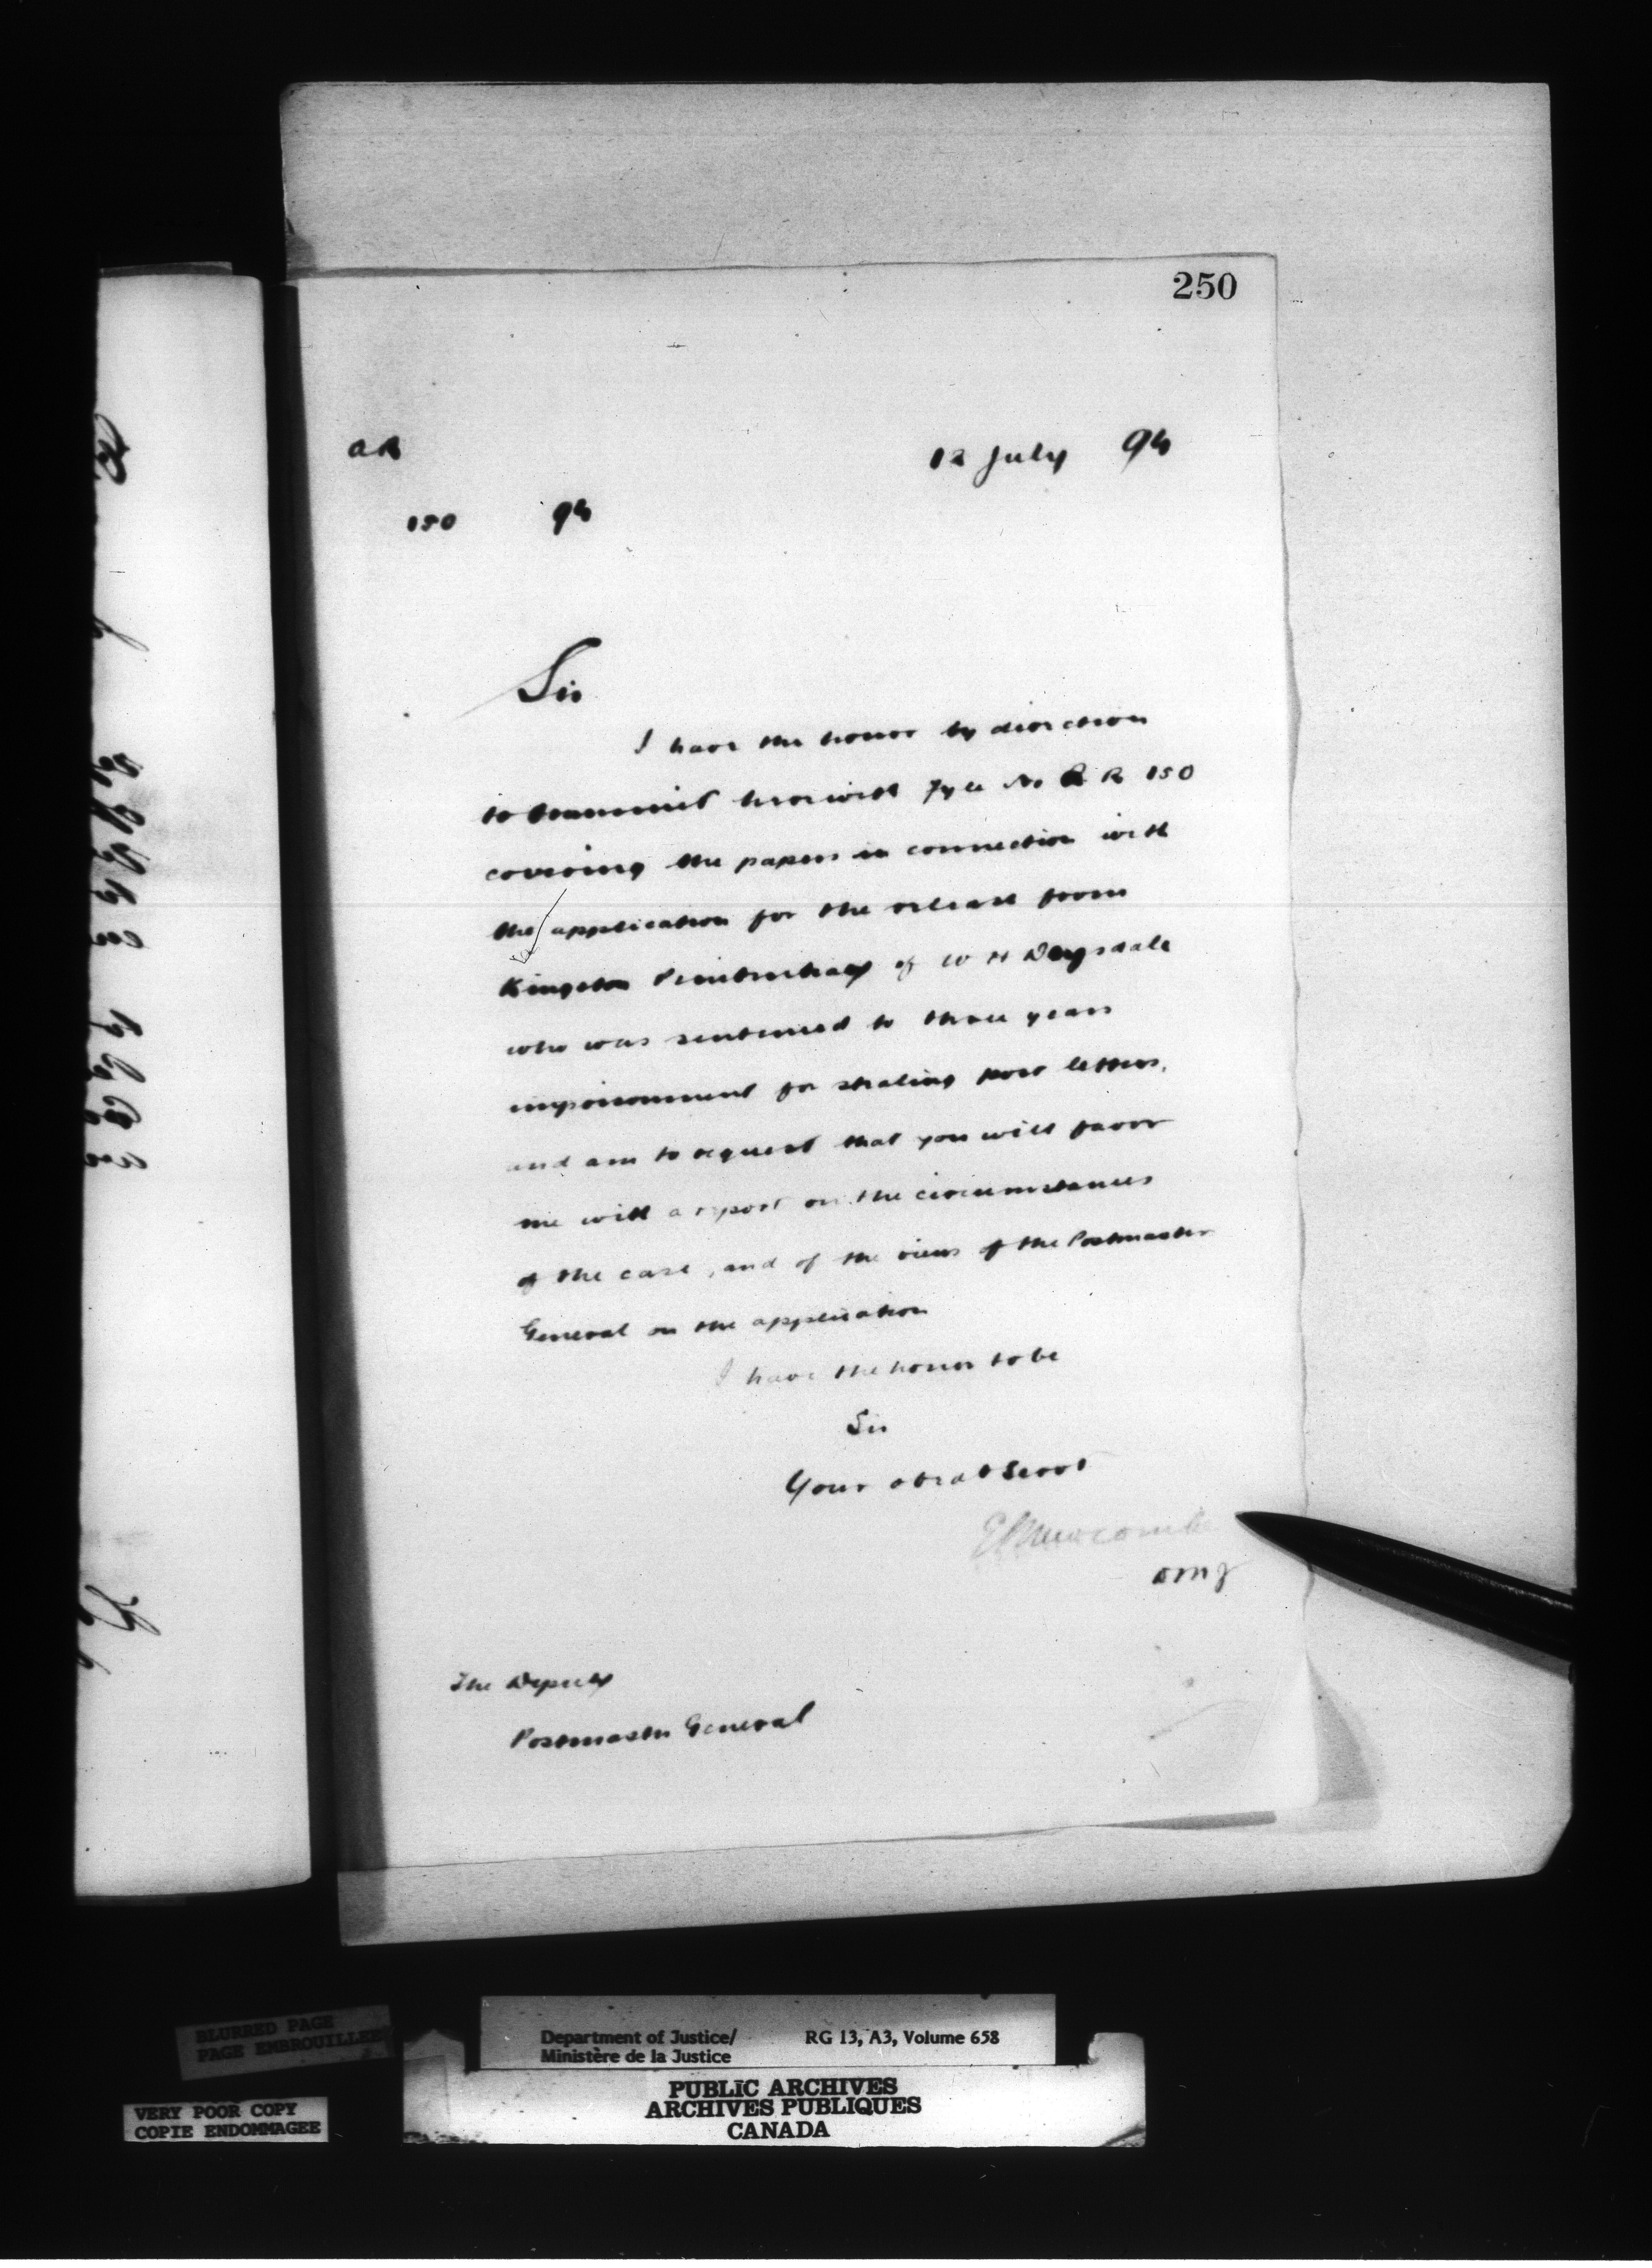 250
A R 12 July 94
150 94
Sir
I have the honor by direction
to transmit herewith Fyle No A R 150
covering the papers in connection with
the application for the release from
Kingston Penitentiary of W H Drysdale
who was sentenced to three years
imprisonment for stealing post letters,
and am to request that you will favor
me with a report on the circumstances
of the case, and of the views of the Postmaster
General on the application
I have the honor to be
Sir
Your obedt Servt
E L Newcombe
DMJ
The Deputy
Postmaster General
BLURRED PAGE
PAGE EMBROUILLEE
VERY POOR COPY
COPIE ENDOMMAGEE
Department of Justice/ RG 13, A3, Volume 658
Ministère de la Justice
PUBLIC ARCHIVES
ARCHIVES PUBLIQUES
CANADA